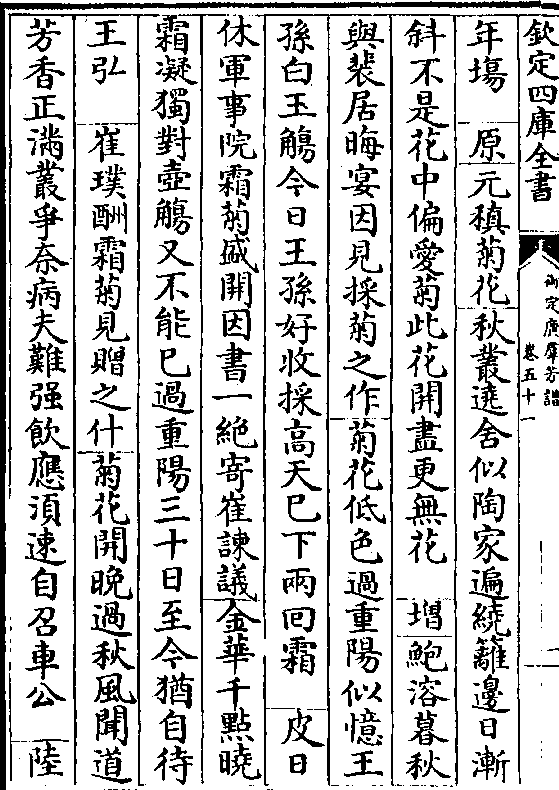 欽定四庫全書
御定廣羣芳譜
卷五十一
年塲　原元稹菊花秋叢遶舍似陶家遍繞籬邊日漸
斜不是花中偏愛菊此花開盡更無花　增鮑溶暮秋
與裴居晦宴因見採菊之作菊花低色過重陽似憶王
孫白玉觴今日王孫好收採高天已下兩回霜　皮日
休軍事院霜菊盛開因書一絶寄崔諫議金華千點曉
霜凝獨對壺觴又不能已過重陽三十日至今猶自待
王弘　崔璞酬霜菊見贈之什菊花開晚過秋風聞道
芳香正滿叢爭奈病夫難强飲應須速自召車公　陸